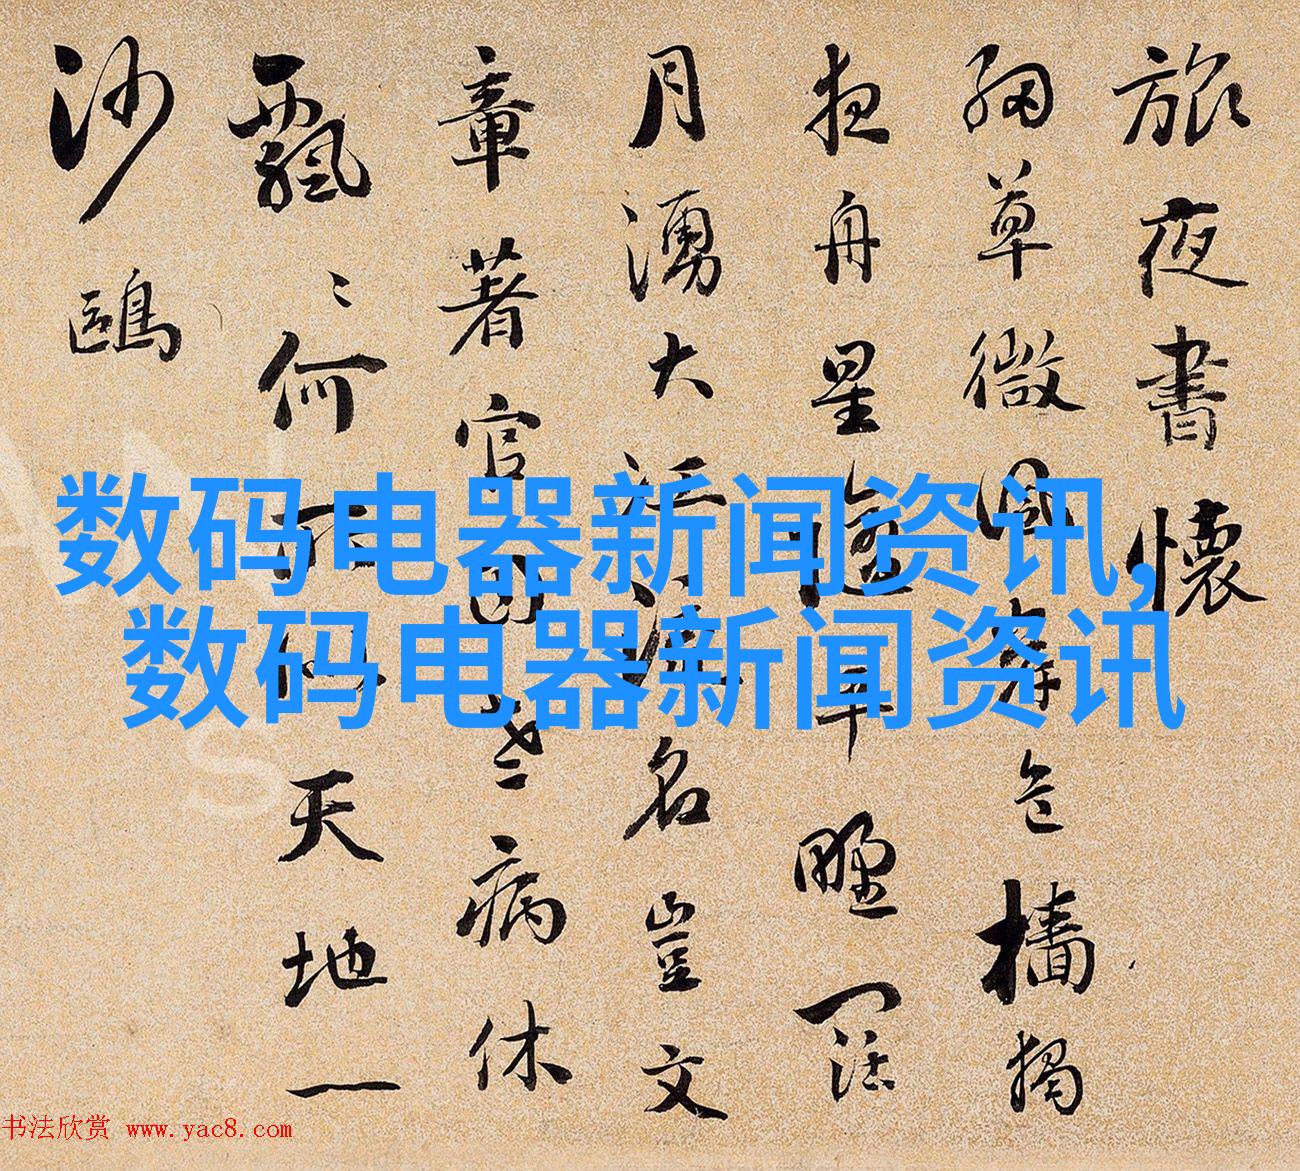 旅夜書懷
細草微風岸危檣獨
夜舟星平野闊
月湧大江流名豈文
章著官因老病休
飄〻何所似天地一
沙鷗
数码电器新闻资讯,
数码电器新闻资讯
书法欣赏 www.yac8.com